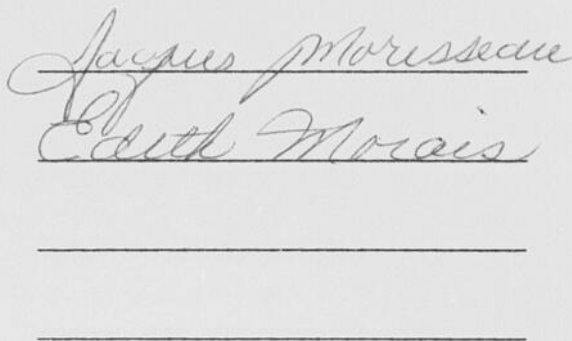 Jacques Morisseau
Edith Morais